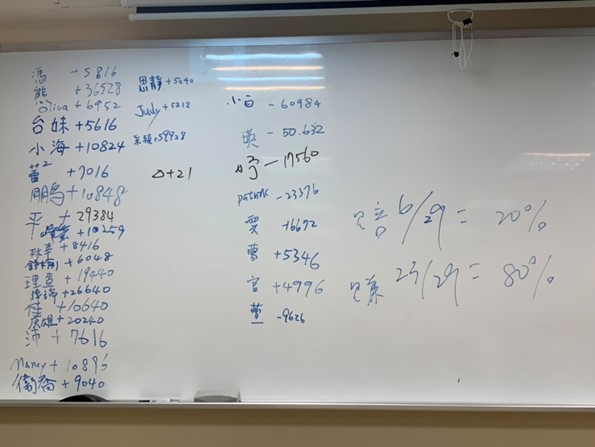 馮 +5816
熊 +36528
Oliva +6952
台妹 +5616
小海 +10824
蕾² +7016
鵬 +10848
平 +29384
+10259
+8416
+6048
+19440
+26640
桂 +10640
英雄 +20240
沛 +7616
Nancy + 10896
+ 9040
思靜 +5040
Judy +5218
+59928
△+21
小白 -60984
英 -50.632
呼 -17560
Patrick -23376
雯 +6672
+5346
官 +4996
萱 -9626
賠 6/29 = 20%
賺 23/29 = 80%